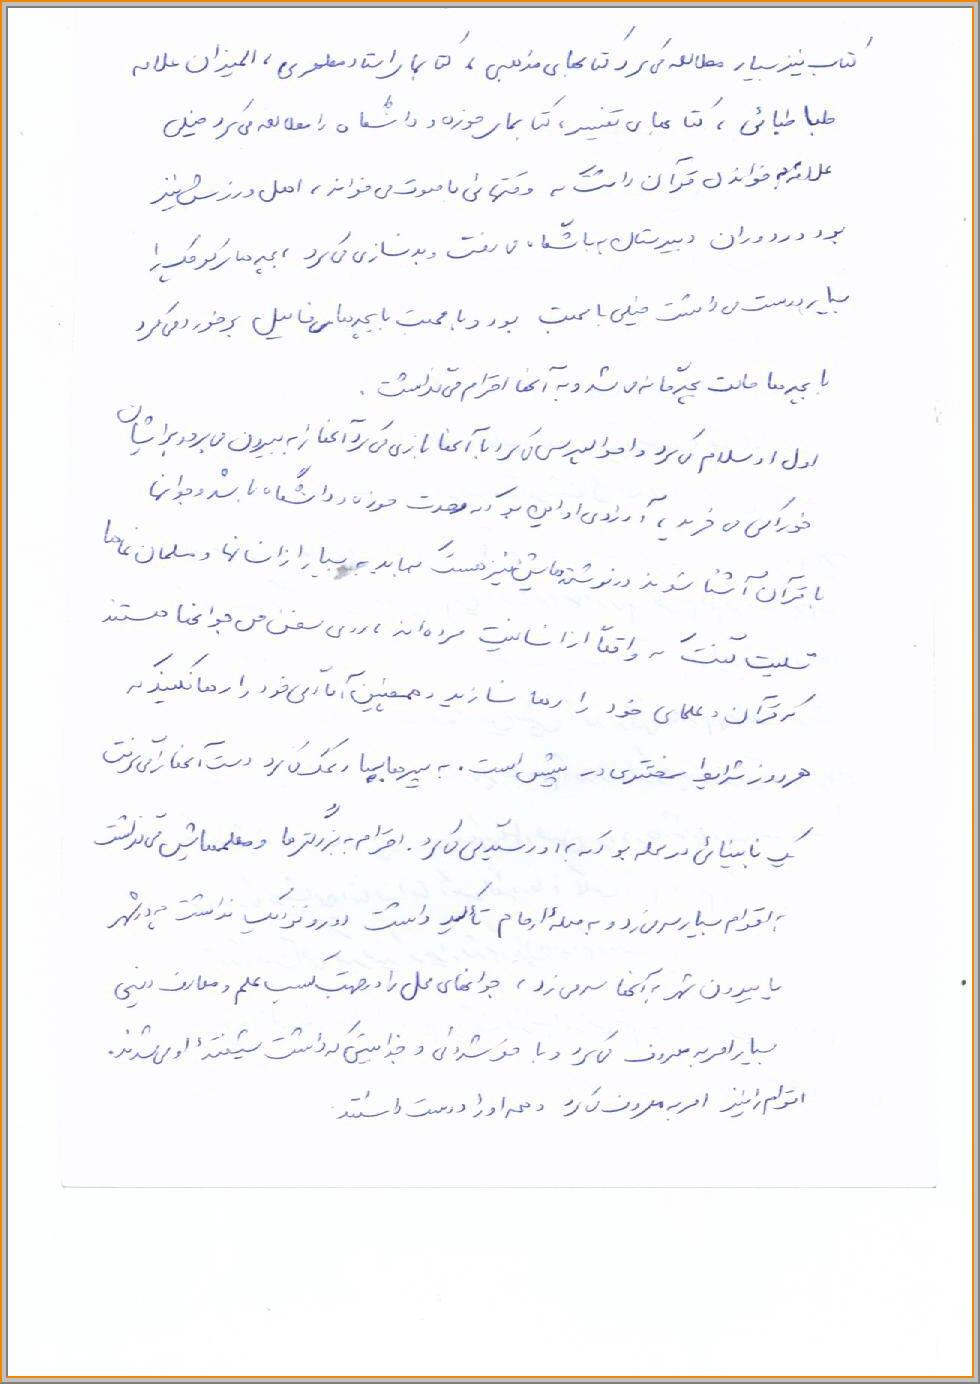 کتاب نیز بسیار مطالعه می کرد کتابهای مذهبی ، کتابهای استاد مطهری ، المیزان علامه
طباطبائی ، کتابهای تفسیر ، کتابهای حوزه و دانشگاه را مطالعه می کرد خیلی
علاقه به خواندن قرآن داشت که وقتهائی با صوت می خواند ، اهل ورزش نیز
بود در دوران دبیرستان به باشگاه می رفت و بدنسازی می کرد ، بچه های کوچک را
بسیار دوست می داشت خیلی با محبت بود و با محبت با بچه های فامیل برخورد می کرد
با بچه ها حالت بچّگانه می شد و به آنها احترام می گذاشت .
اول او سلام می کرد و احوالپرسی می کرد با آنها بازی می کرد آنها را به بیرون می برد و برایشان
خوراکی می خرید ، آرزوی او این بود که وحدت حوزه و دانشگاه باشد و جوانها
با قرآن آشنا شوند در نوشته هایش نیز هست که باید به بسیار از انسانها و مسلمان نماها
تسلیت گفت که واقعاً از انسانیت مرده اند ، روی سخن من جوانها هستند
که قرآن و علمای خود را رها نسازید و همچنین آمادگی خود را رها نکنید که
هر روز شرایط سخت تری در پیش است . به پیرها بسیار کمک می کرد دست آنها را می گرفت
یک نابینائی در محله بود که به او رسیدگی می کرد . احترام به بزرگترها و معلمهایش می گذاشت
به اقوام بسیار سر می زد و به صلهٔ ارحام تأکید داشت دور و نزدیک نداشت چه در شهر
یا بیرون شهر به آنها سر می زد ، جوانهای محل را در جهت کسب علم و معارف دینی
بسیار امر به معروف می کرد و با خوشروئی و جذابیتی که داشت شیفتهٔ او می شدند .
اقوام را نیز امر به معروف می کرد و همه او را دوست داشتند